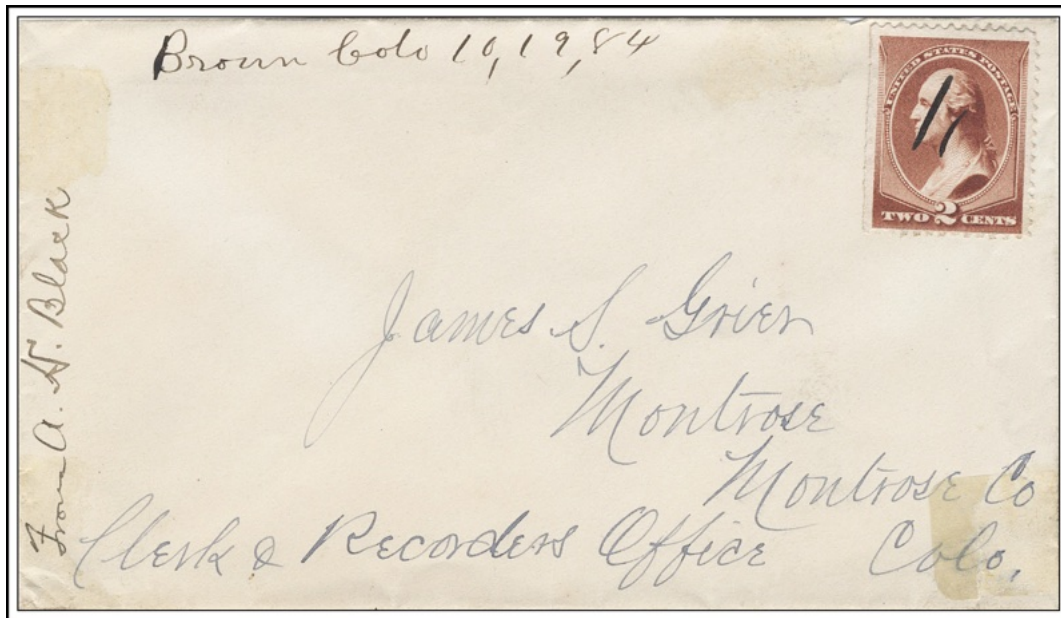 Brown Colo 10,19,84
UNITED STATES POSTAGE
TWO 2 CENTS
From A. H. Black
James S. Grier
Montrose
Montrose Co
Clerk & Recorders Office Colo.